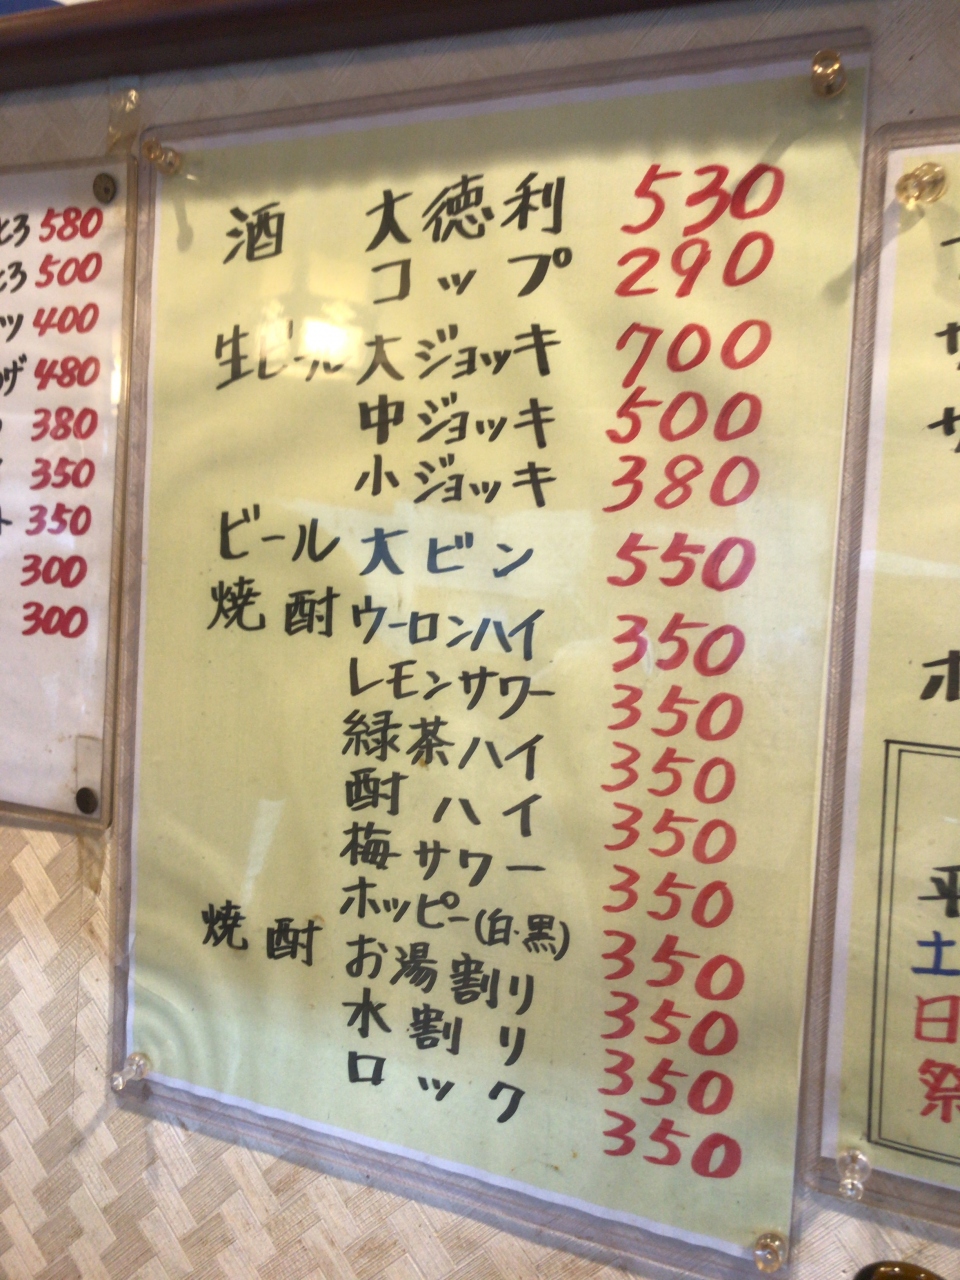 とろ 580
とろ 500
ッ 400
480
380
350
ト 350
300
300
酒 大徳利 530
コップ 290
生ビール 大ジョッキ 700
中ジョッキ 500
小ジョッキ 380
ビール 大ビン 550
焼酎 ウーロンハイ 350
レモンサワー 350
緑茶ハイ 350
酎ハイ 350
梅サワー 350
ホッピー(白・黒) 350
焼酎 お湯割り 350
水割り 350
ロック 350
サ
サ
ホ
平
土
日
祭